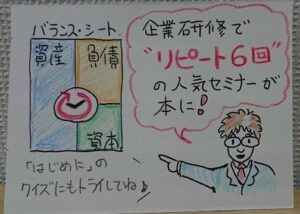 バランス・シート
資産
負債
資本
「はじめに」の
クイズにもトライしてね♪
企業研修で
"リピート6回"
の人気セミナーが
本に!